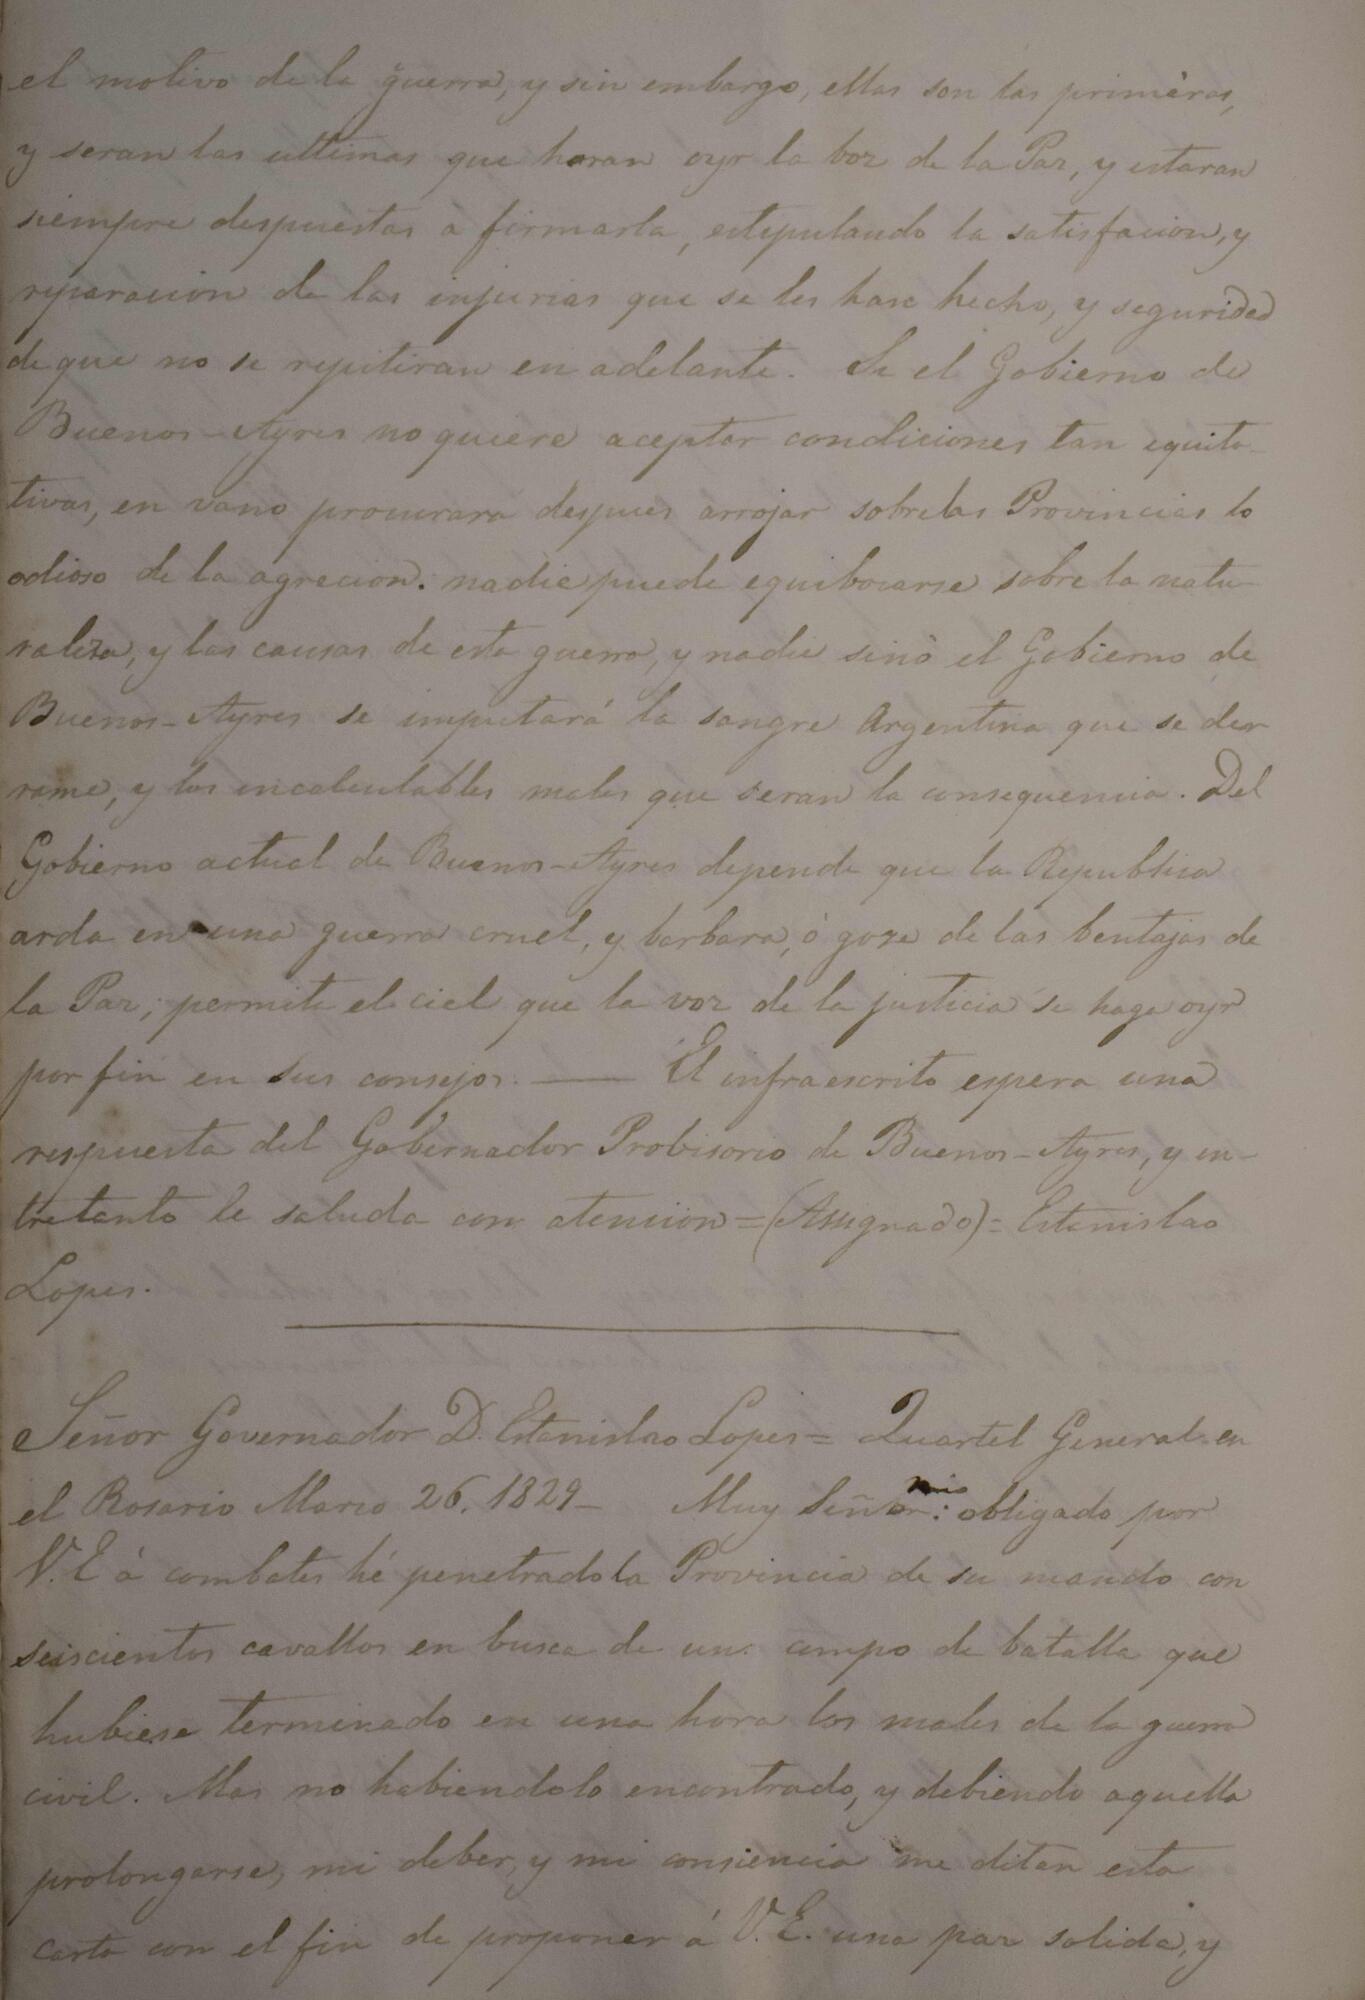 el motivo de la guerra, y sin embargo, ellas son las primèras,
y seran las ultimas que haran oyr la boz de la Paz, y estaran
siempre despuestas a firmarla, estepulando la satisfacion, y
reparacion de las injurias que se les hase hecho, y seguridad
de que no se repitiran en adelante. Se el Gobierno de
Buenos-Ayres no quiere aceptar condiciones tan equita-
tivas, en vano procurará despues arrojar sobre las Provincias lo
odioso de la agrecion. nadie puede equibocarse sobre la natu-
raleza, y las causas de esta guerra, y nadie sinò el Gobierno de
Buenos-Ayres se imputará la sangre Argentina que se der
rame, y los incalculables males que seran la consequencia. Del
Gobierno actual de Buenos-Ayres depende que la Republica
arda en una guerra cruel, y barbara, ó goze de las bentajas de
la Paz; permita el ciel que la voz de la justicia se haga oyr
por fin en sus consejos. —— El infraescrito espera una
respuesta del Gobernador Probisorio de Buenos-Ayres, y en-
tretanto le saluda con atencion = (Assignado) = Estanislao
Lopes.
Señor Governador D. Estanislao Lopes = Quartel General en
el Rosario Marzo 26. 1829 - Muy Señor mio: obligado por
V. E á combates hé penetrado la Provincia de su mando con
seiscientos cavallos en busca de un campo de batalla que
hubiese terminado en una hora los males de la guerra
civil. Mas no habiendolo encontrado, y debiendo aquella
prolongarse, mi deber, y mi consiencia me ditan esta
carta con el fin de proponer á V. E. una paz solida, y